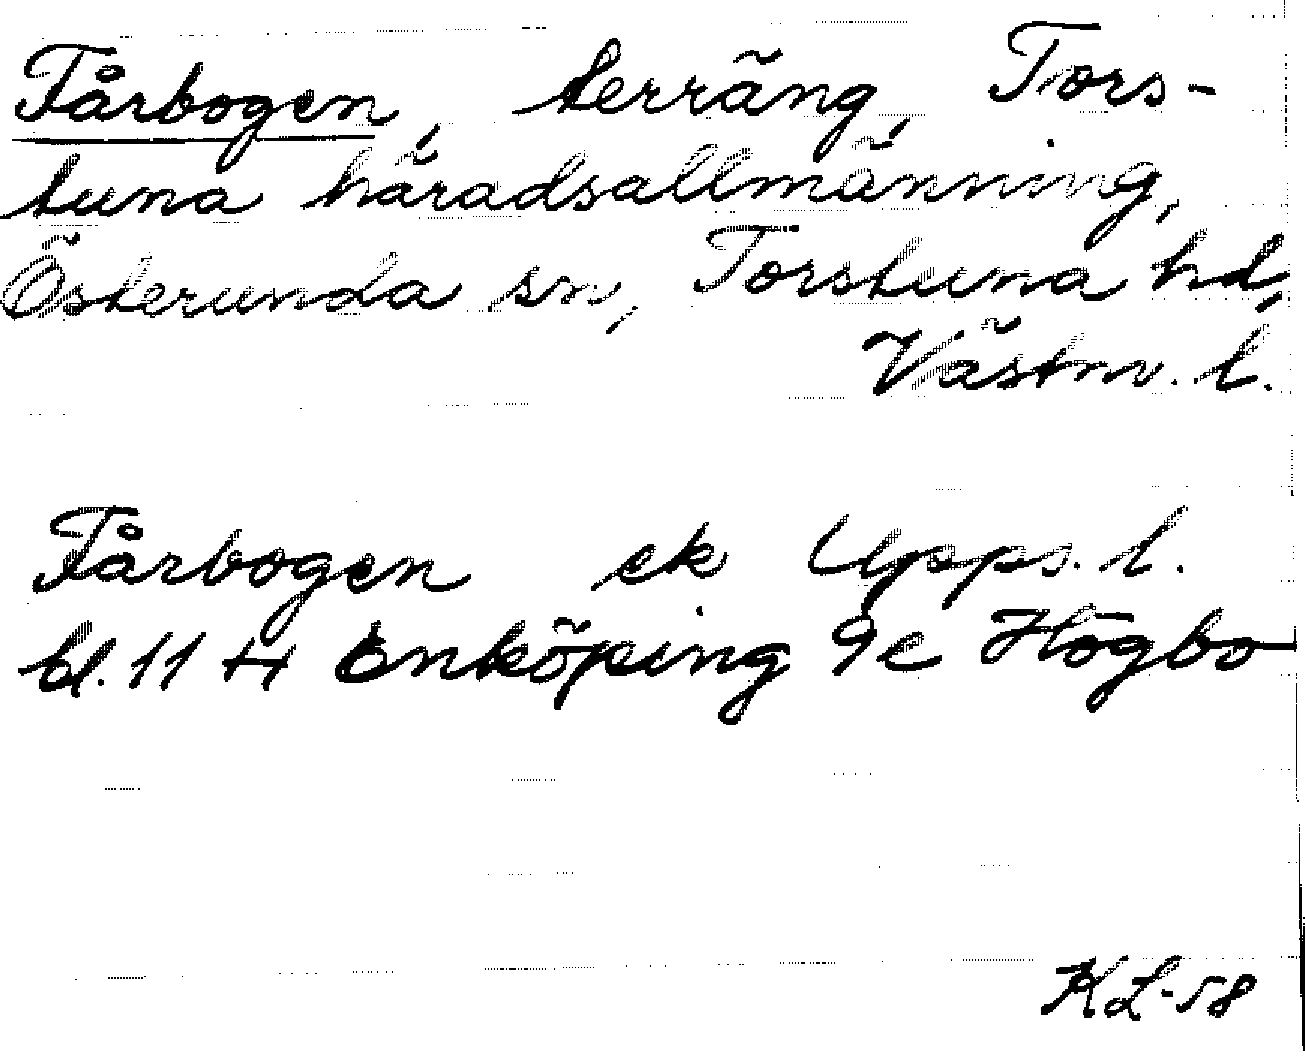 Fårbogen, terräng, Tors-
tuna häradsallmänning,
Österunda sn, Torstuna hd,
Västm. l.
Fårbogen ek Upps. l.
bl. 11 H Enköping 9c Högbo
KL-58